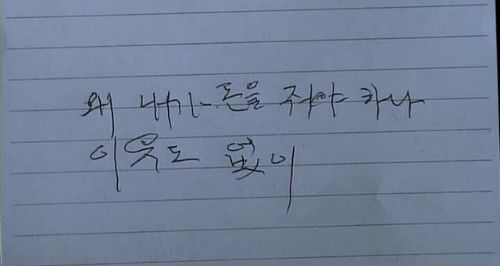 왜 내가 돈을 줘야 카나
이웃도 없이